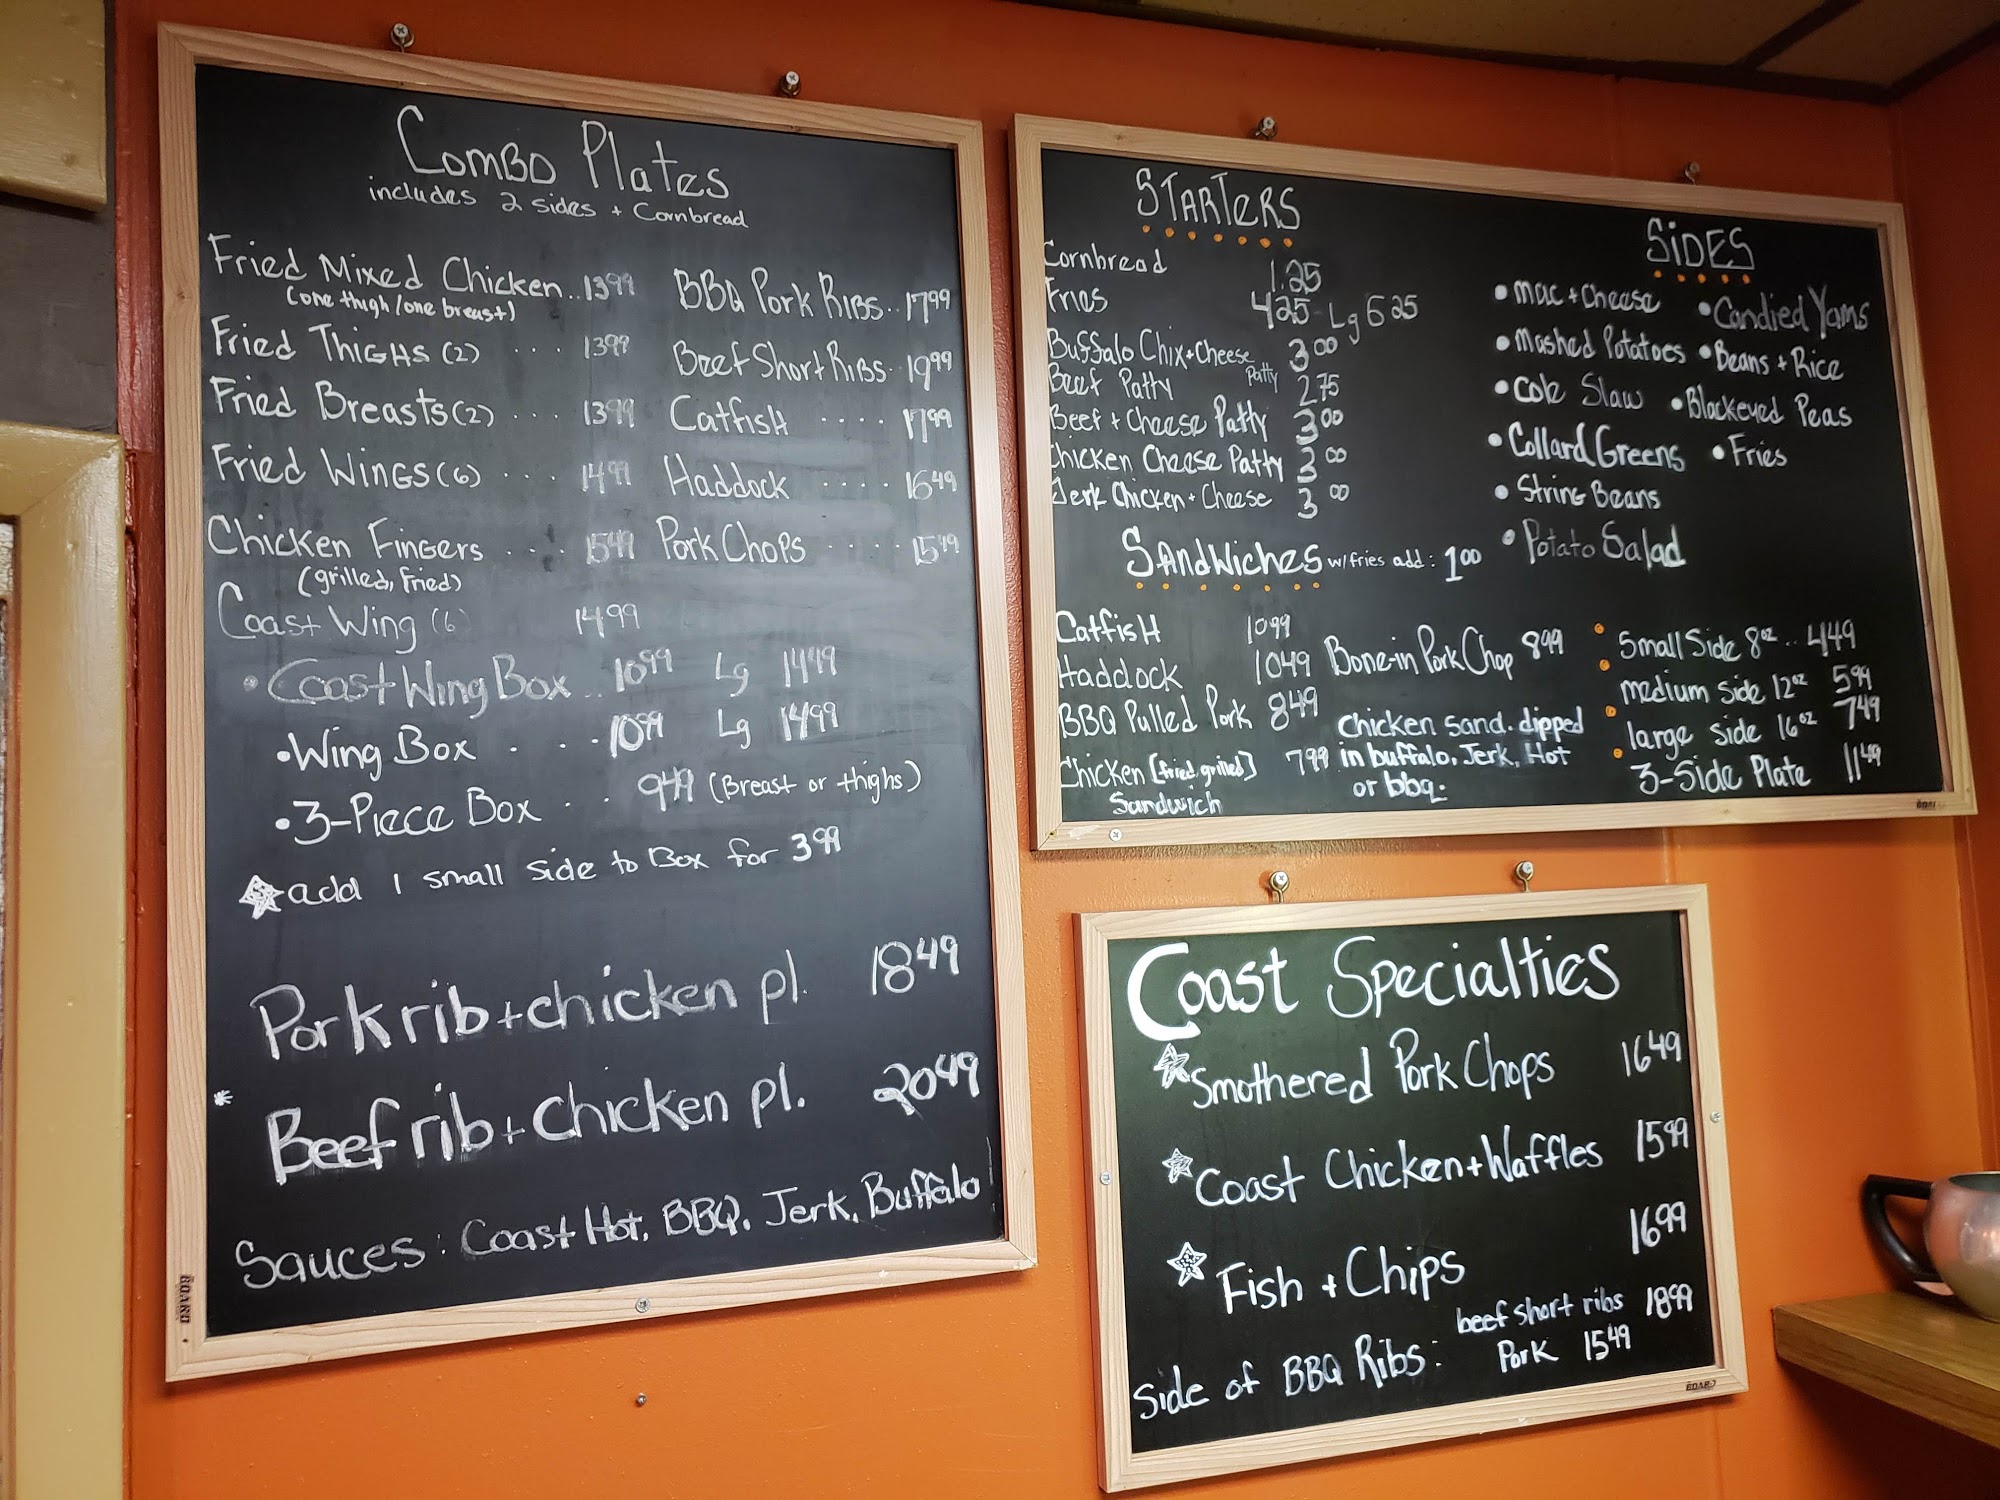 Combo Plates
includes 2 sides + Cornbread
Fried Mixed Chicken.. 13 99
(one thigh/one breast)
Fried Thighs (2) ... 13 99
Fried Breasts (2) ... 13 99
Fried Wings (6) ... 14 99
Chicken Fingers ... 15 49
(grilled, Fried)
Coast Wing (6) 14 99
BBQ Pork Ribs.. 17 99
Beef Short Ribs. 19 99
Catfish .... 17 99
Haddock .... 16 49
Pork Chops .... 15 49
• Coast Wing Box .. 10 99 Lg 14 99
• Wing Box . .. 10 99 Lg 14 99
• 3-Piece Box .. 9 49 (Breast or thighs)
add 1 small side to Box for 3 99
Pork rib + chicken pl. 18 49
* Beef rib + Chicken pl. 20 49
Sauces: Coast Hot, BBQ, Jerk, Buffalo
BOARD
Starters
Cornbread 1.25
Fries 4 25 - Lg 6 25
Buffalo Chix + Cheese Patty 3 00
Beef Patty 2 75
Beef + Cheese Patty 3 00
Chicken Cheese Patty 3 00
Jerk Chicken + Cheese 3 00
Sandwiches w/fries add: 1 00
Catfish 10 99
Haddock 10 49
BBQ Pulled Pork 8 49
Chicken [fried, grilled] 7 99
Sandwich
Bone-in Pork Chop 8 99
Chicken Sand. dipped
in buffalo, Jerk, Hot
or bbq.
Sides
• Mac + Cheese
• Mashed Potatoes
• Cole Slaw
• Collard Greens
• String Beans
• Potato Salad
• Candied Yams
• Beans + Rice
• Blackeyed Peas
• Fries
• Small Side 8 oz .. 4 49
• medium side 12 oz 5 99
• large side 16 oz 7 49
• 3-Side Plate 11 49
Coast Specialties
Smothered Pork Chops 16 49
Coast Chicken + Waffles 15 99
Fish + Chips 16 99
Side of BBQ Ribs: beef short ribs 18 99
Pork 15 49